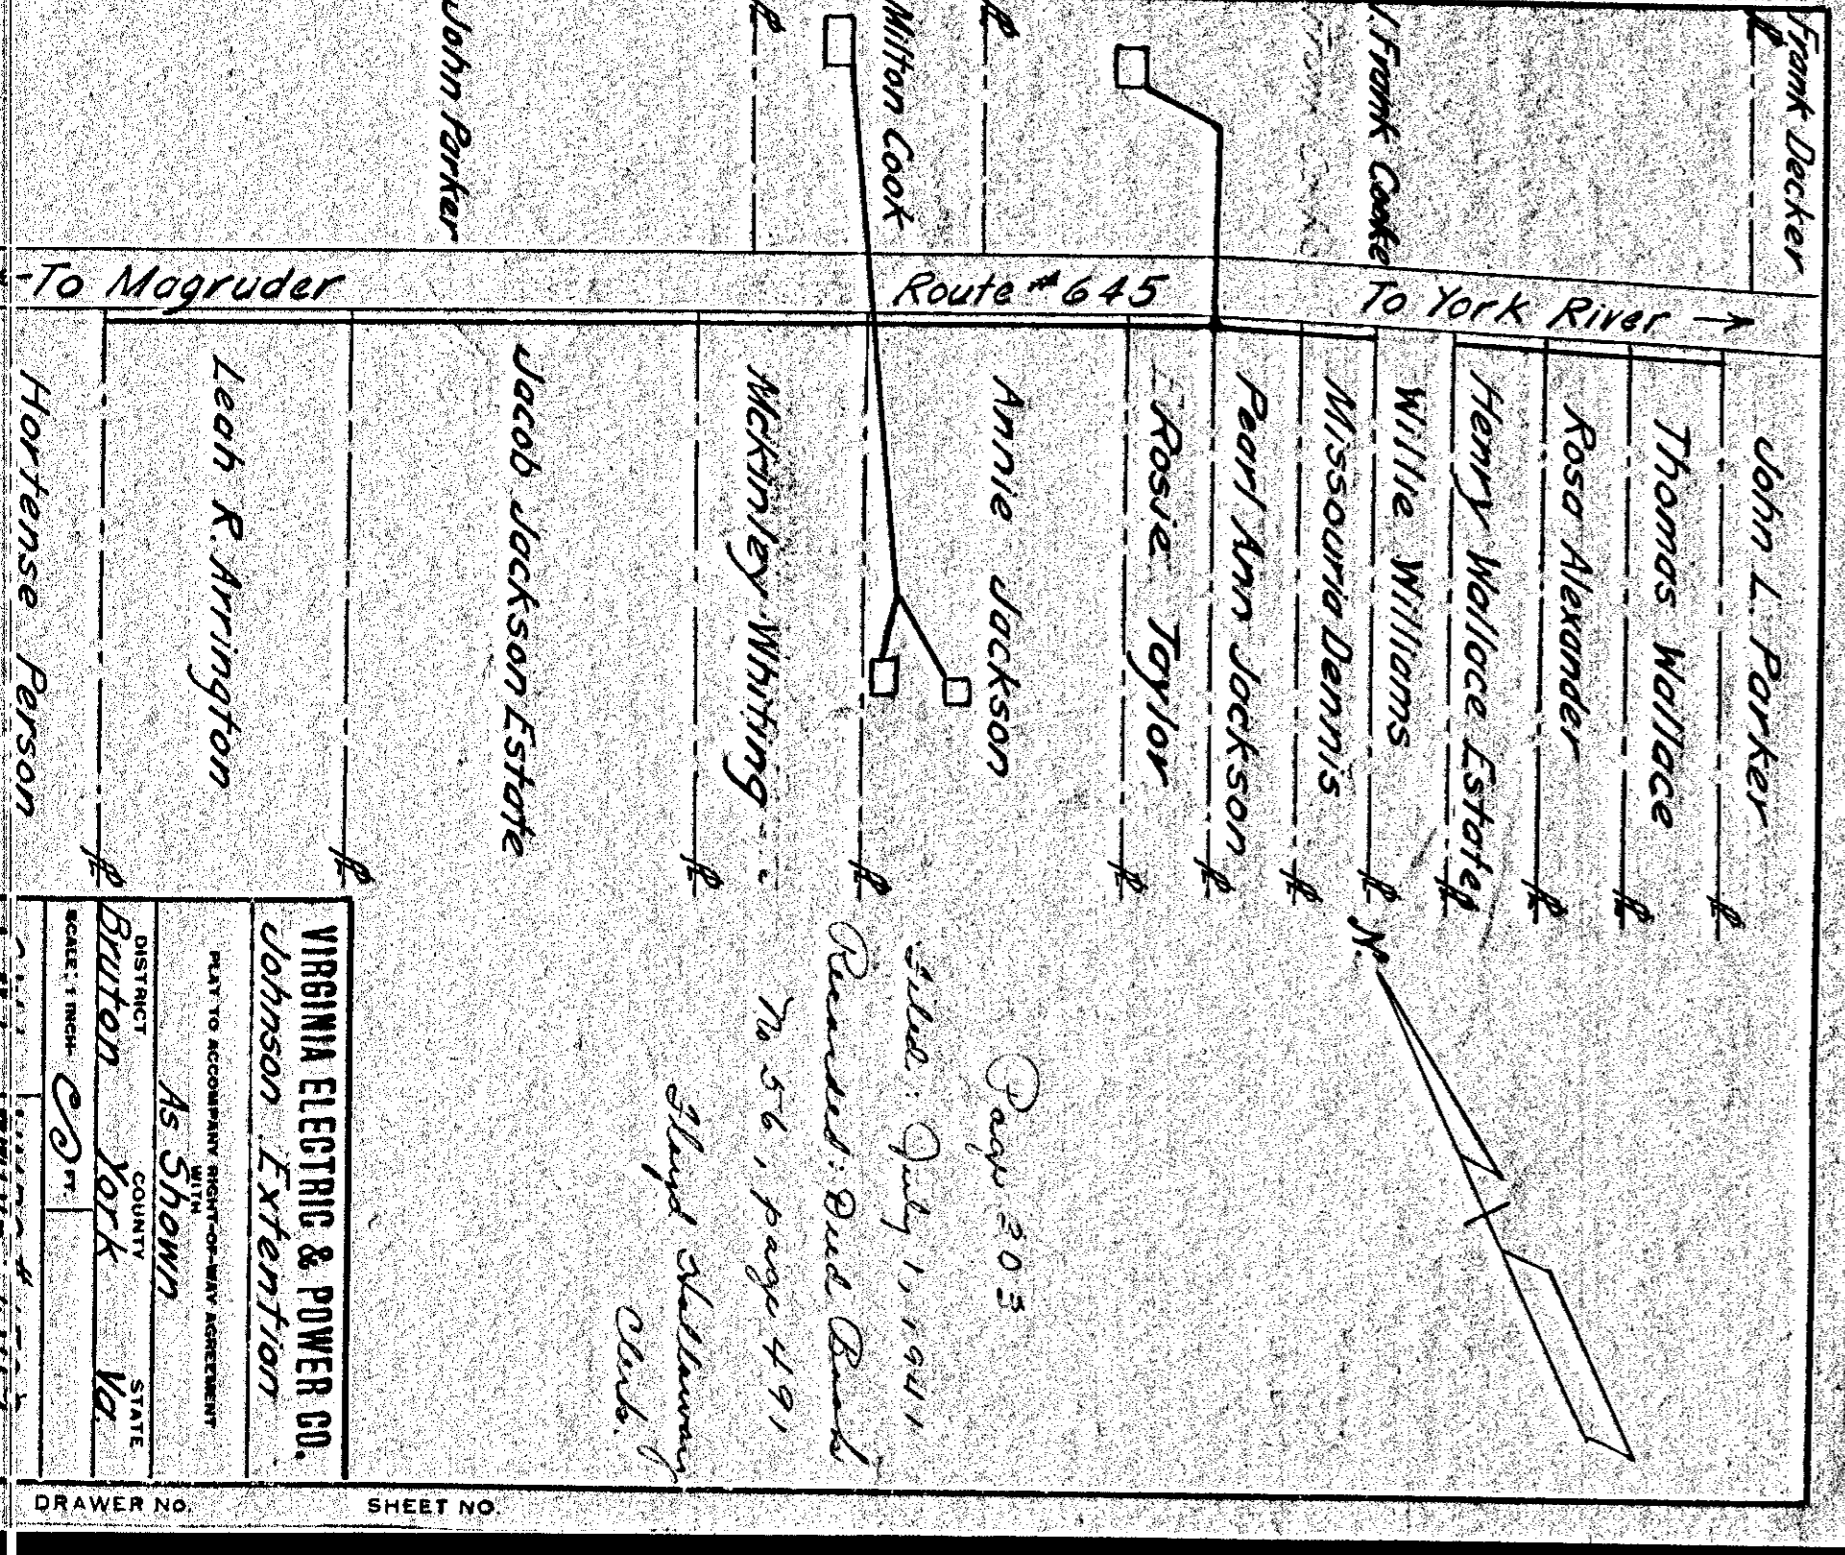 Frank Decker
J. Frank Cooke
Milton Cook
John Parker
To Magruder
Route #645
To York River →
John L. Parker
Thomas Wallace
Rosa Alexander
Henry Wallace Estate
Willie Williams
Missouria Dennis
Pearl Ann Jackson
Rosie Taylor
Annie Jackson
McKinley Whiting
Jacob Jackson Estate
Leah R. Arrington
Hortense Person
N.
Page 303
Filed: July 1, 1941
Recorded: Deed Book
No 56, page 491
Floyd Holloway
Clerk.
VIRGINIA ELECTRIC & POWER CO.
Johnson Extention
PLAT TO ACCOMPANY RIGHT-OF-WAY AGREEMENT
WITH
As Shown
DISTRICT COUNTY STATE
Bruton York Va.
SCALE: 1 INCH- FT.
DRAWER NO. SHEET NO.